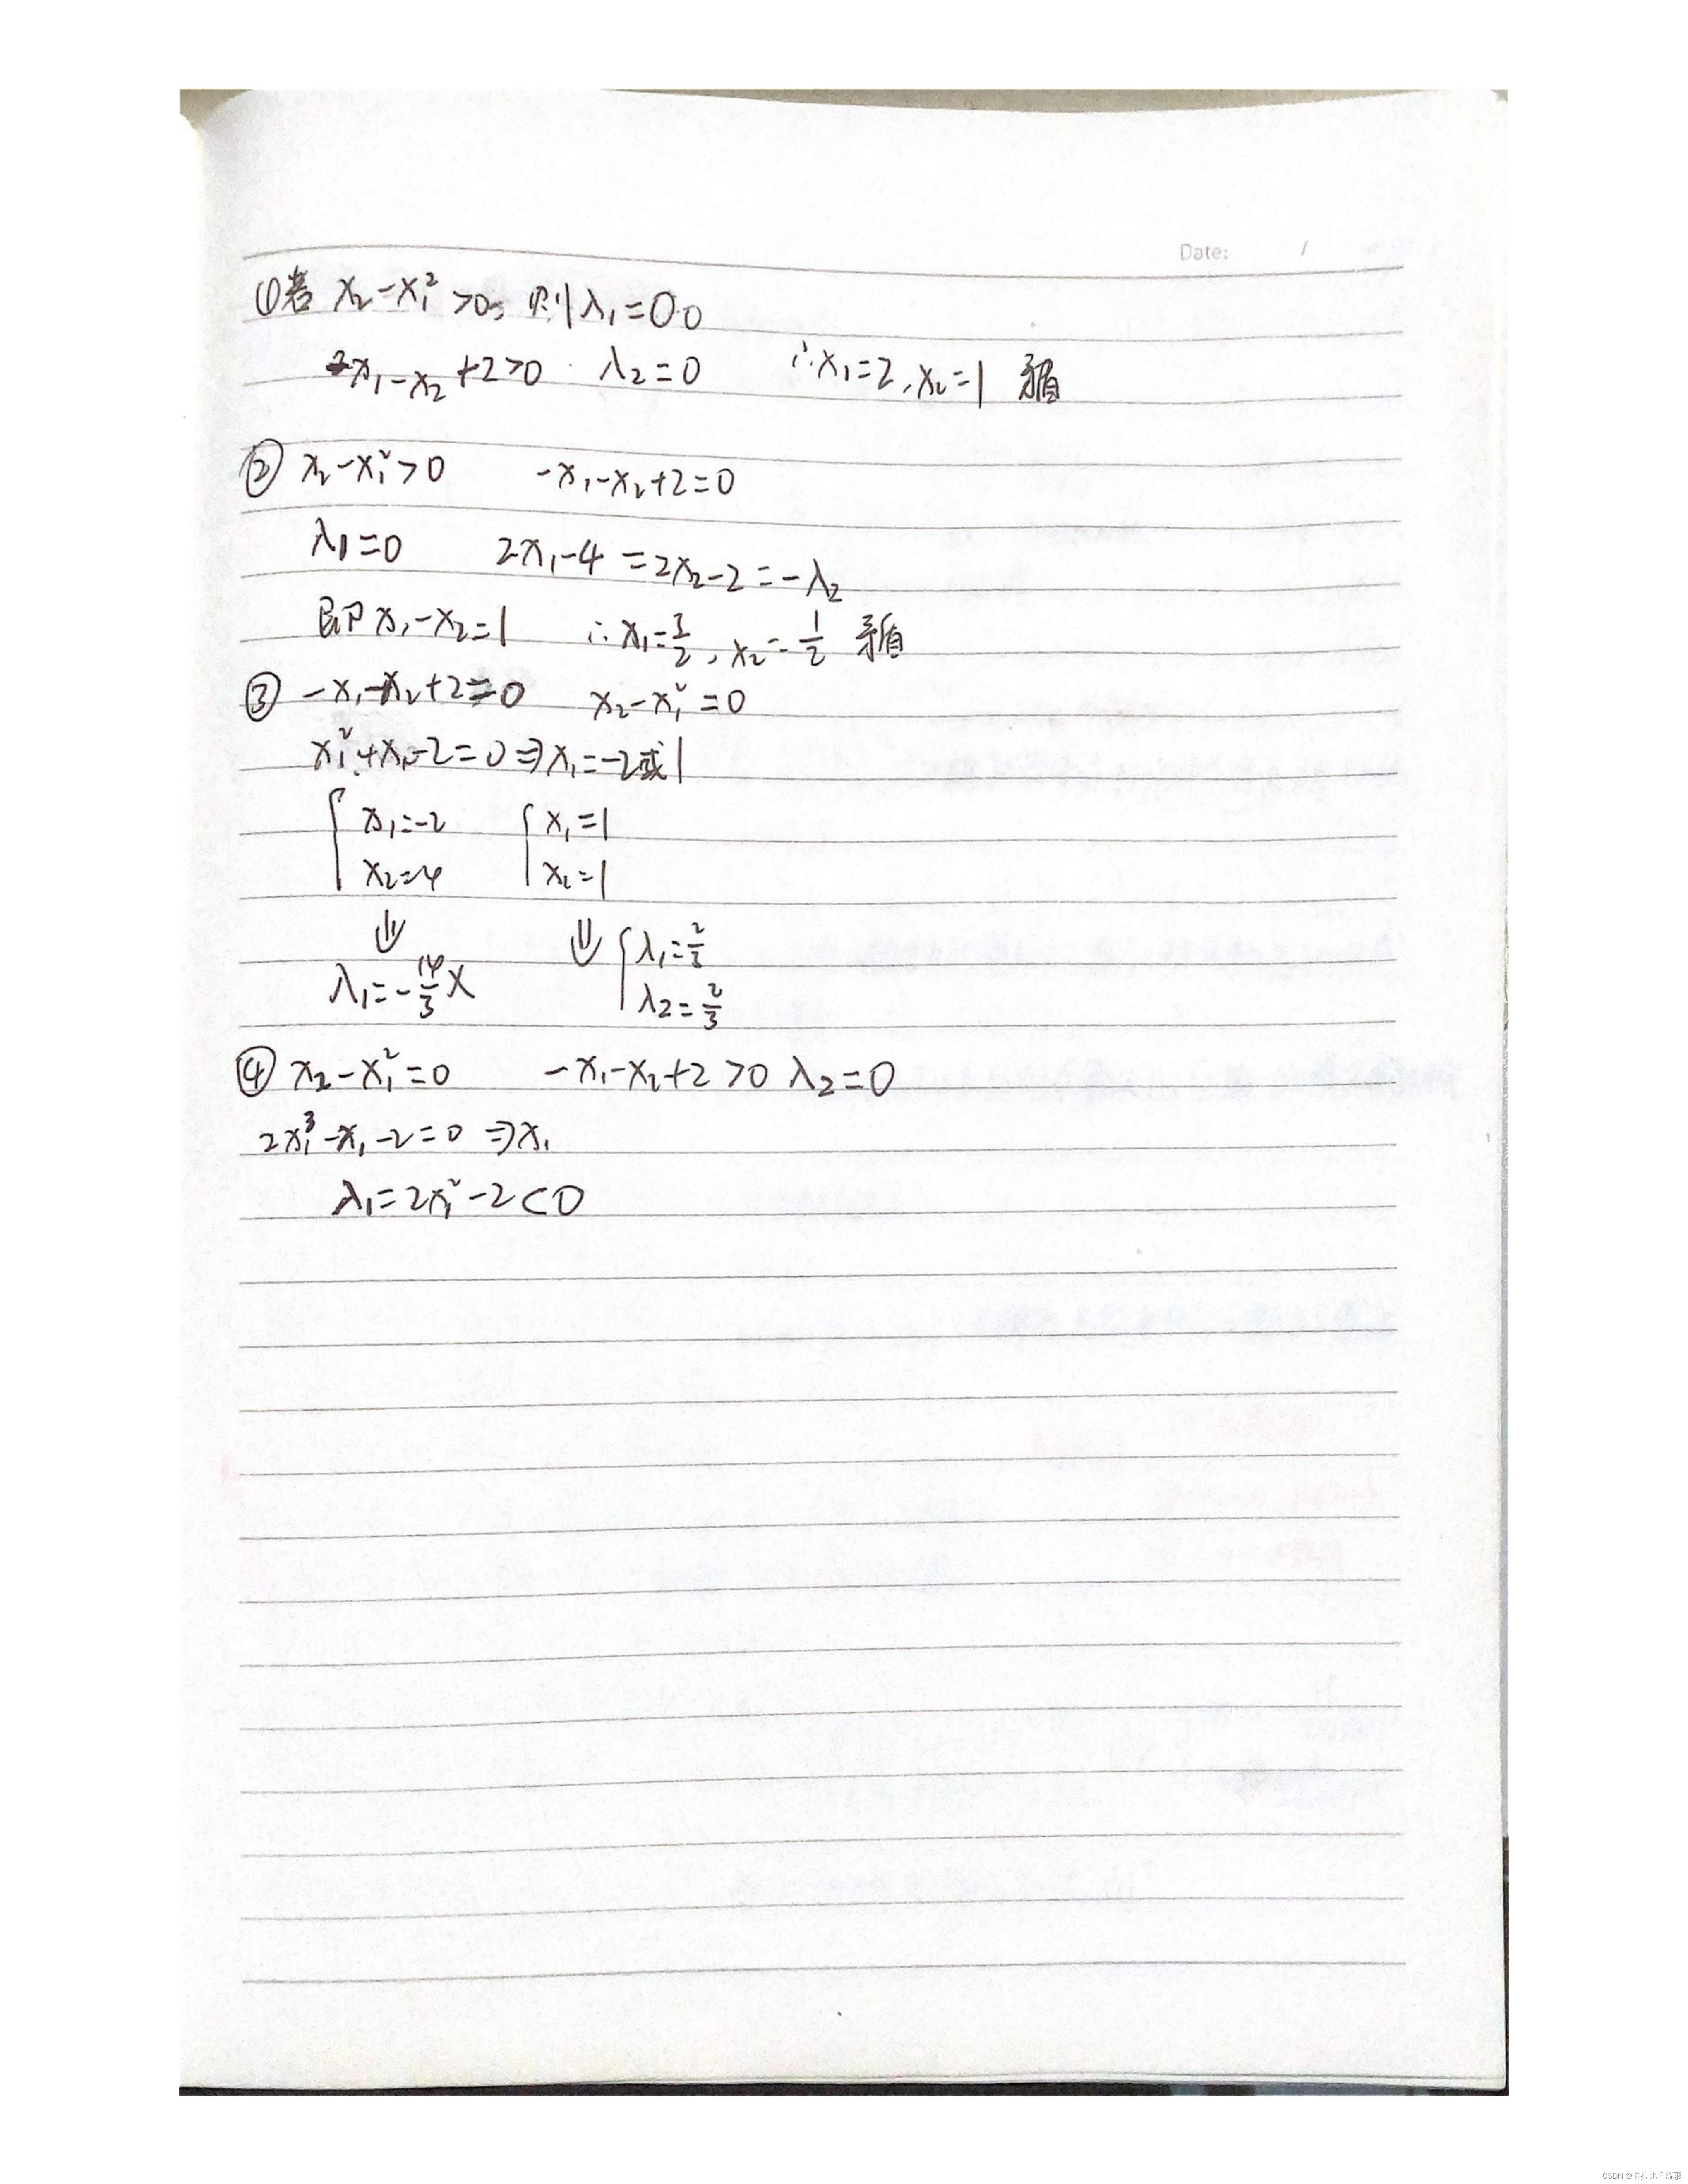 Date: /
①若 x₂-x₁²>0, 则λ₁=0
-x₁-x₂+2>0 λ₂=0 ∴x₁=2,x₂=1 矛盾
② x₂-x₁²>0 -x₁-x₂+2=0
λ₁=0 2x₁-4=2x₂-2=-λ₂
即 x₁-x₂=1 ∴x₁=3/2, x₂=1/2 矛盾
③ -x₁-x₂+2=0 x₂-x₁²=0
x₁²+x₁-2=0⇒x₁=-2或1
{ x₁=-2 { x₁=1
x₂=4 x₂=1
⇓ ⇓ { λ₁=2/3
λ₁=-14/3 × λ₂=2/3
④ x₂-x₁²=0 -x₁-x₂+2>0 λ₂=0
2x₁³-x₁-2=0 ⇒x₁
λ₁=2x₁²-2<0
CSDN @卡拉比丘流形